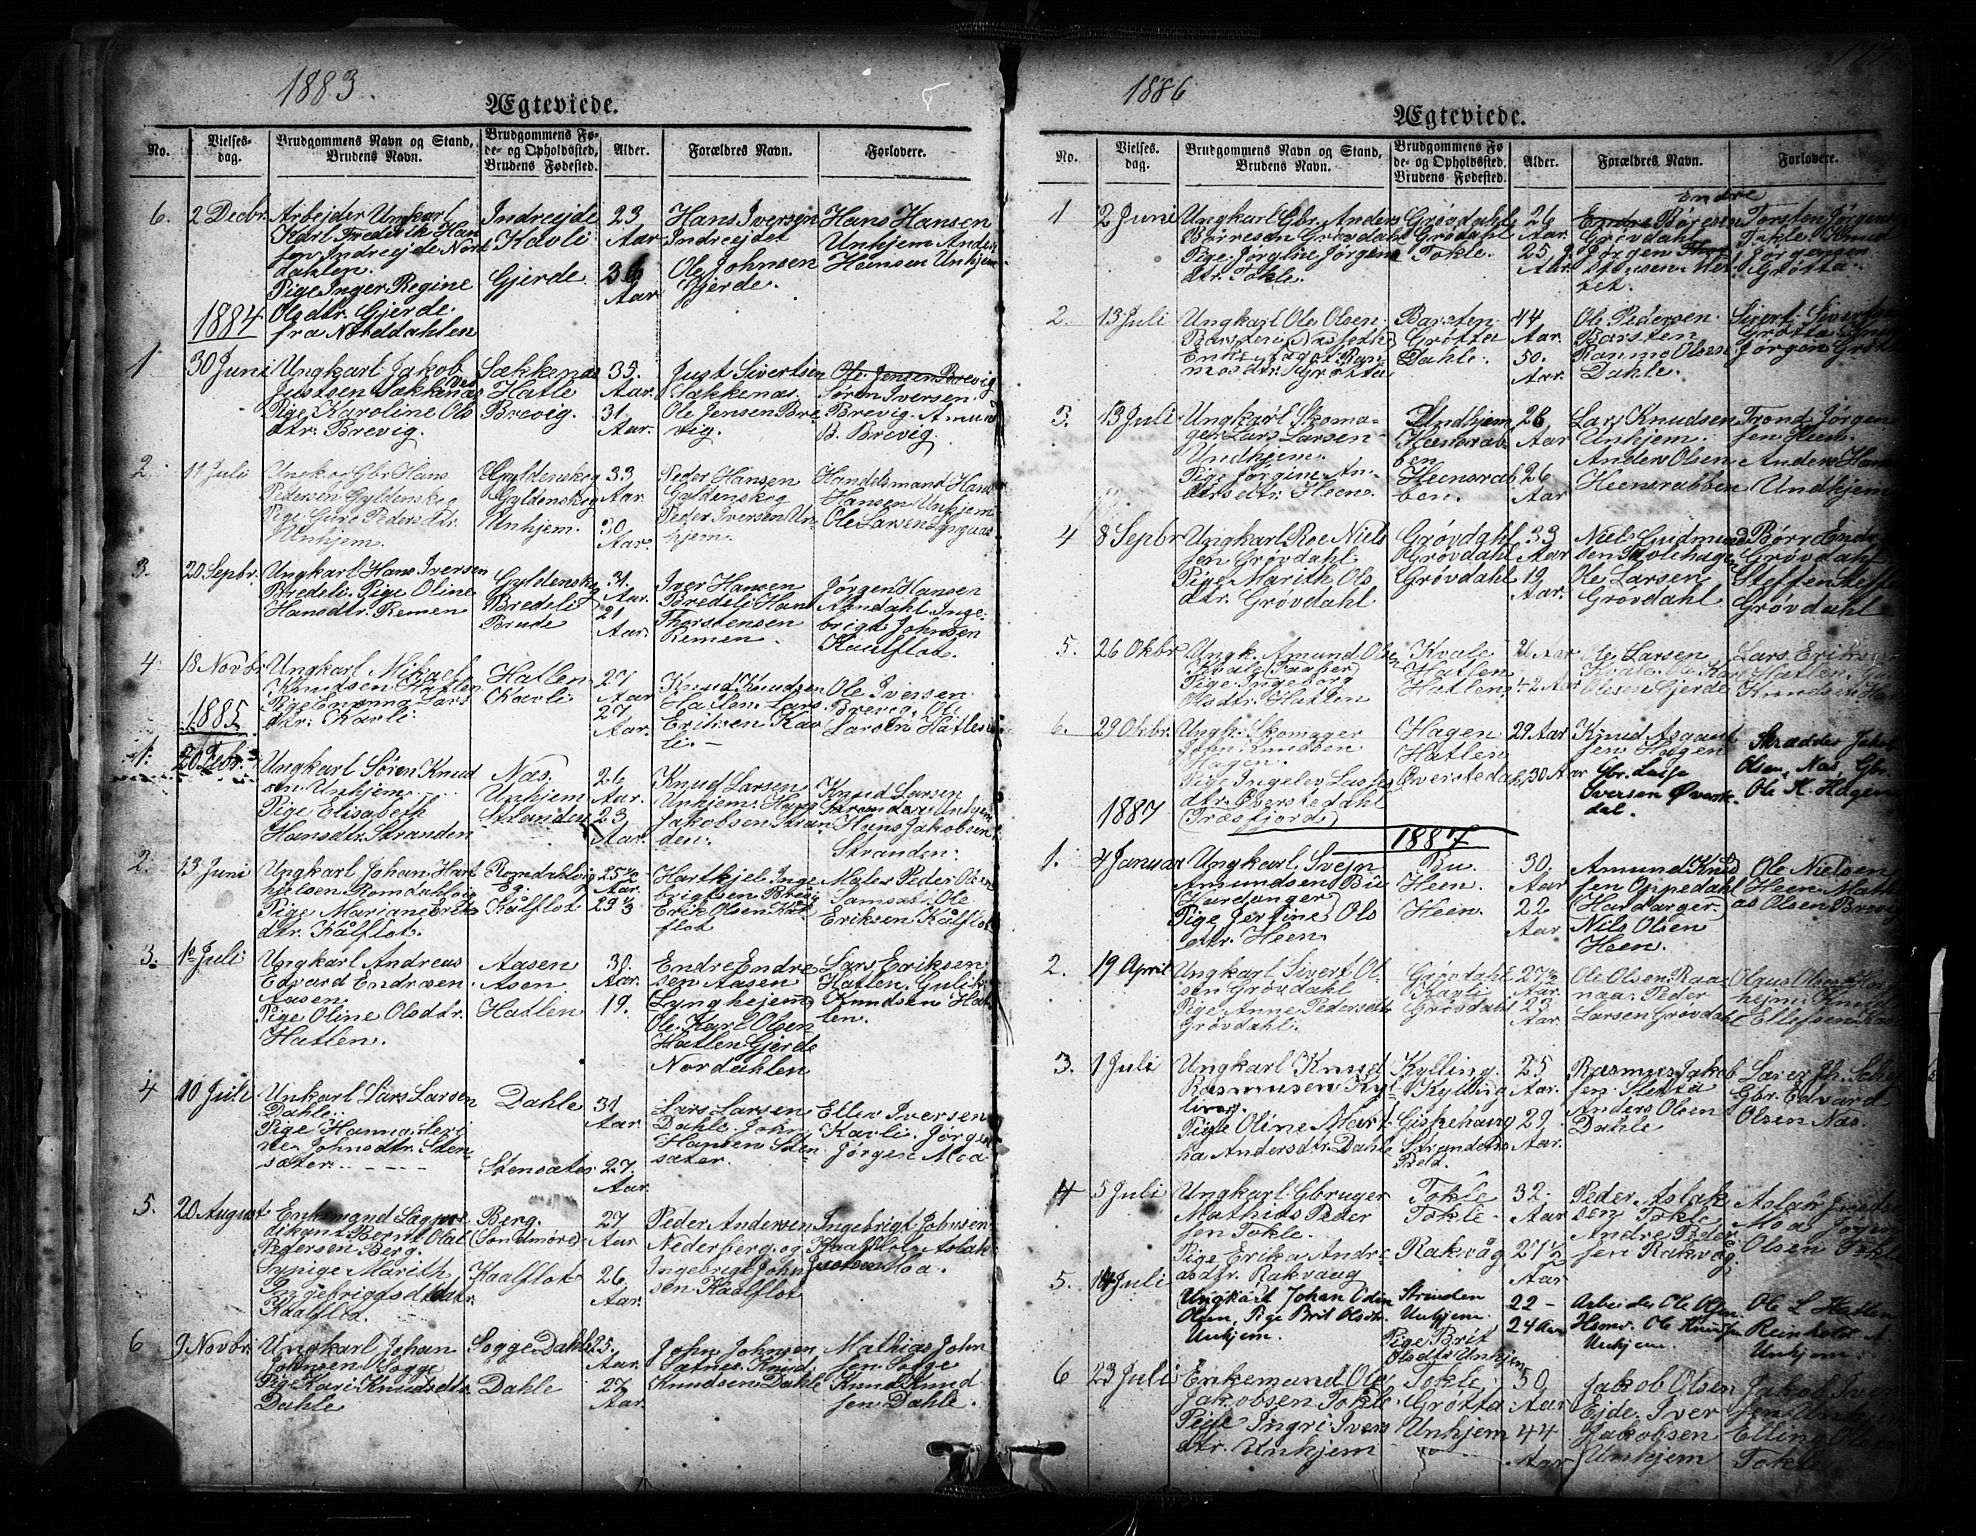 1883.
Ægteviede.
No.
Vielses-
dag.
Brudgommens Navn og Stand,
Brudens Navn.
Brudgommens Fø-
de- og Opholdssted,
Brudens Fødested.
Alder.
Forældres Navn.
Forlovere.
6.
2 Decbr.
Arbejder Ungkarl
Karl Frederik Han
sen Indreejde Nord
dahlen.
Pige Inger Regine
Olsdtr. Gjerde
fra Norddahlen
Indreejde
Kavli
Gjerde
23
Aar
36
Aar
Hans Iversen
Indreejdet
Ole Johnsen
Gjerde.
Hans Hansen
Unhjem Anders
Hansen Unhjem
1884
1
30 Juni
Ungkarl Jakob
Justsen Sækkenæs
Pige Karoline Ols
dtr. Brevig.
Sækkenæs
Hatle
Brevig.
35.
Aar.
31.
Aar.
Just Sivertsen
Sækkenæs.
Ole Jensen Bre
vig.
Ole Jensen Brevig
Søren Iversen
Brevig. Amund
B. Brevig.
2.
11 Juli
Ungkarl Gbr. Hans
Pedersen Gyldenskog
Pige Guro Pedersdtr.
Unhjem.
Gyldenskog
Gyldenskog
Unhjem.
33
Aar
30
Aar.
Peder Hansen
Gyldenskog
Peder Iversen Un
hjem.
Handelsmand Hans
Hansen Unhjem
Ole Larsen
3.
20 Sepbr.
Ungkarl Hans Iversen
Bredeli. Pige Oline
Hansdtr. Remen
Gyldenskog
Bredeli
Brude
31.
Aar.
21
Aar.
Iver Hansen
Bredeli Hans
Thorstensen
Remen.
Jørgen Hansen
Arndahl Inge-
brigt Johnsen
Kaalflot.
4
18 Novbr.
Ungkarl Mikael
Knutsen Hatlen
Pige Lars
dtr. Kavli
Hatlen
Kavli
27
Aar
27
Aar.
Knud Knudsen
Hatlen Lars
Eriksen Kav
li.
Ole Iversen
Brevig. Ole
Larsen Hatlen
1885
1.
20 Febr.
Ungkarl Søren Knud
sen Unhjem.
Pige Elisabeth
Hansdtr. Stranden
Nas.
Unhjem
Stranden
26
Aar.
23
Aar.
Knud Larsen
Unhjem. Hans
Jakobsen Stran
den.
Knud Larsen
Unhjem
Hans Jakobsen
Stranden.
2.
13 Juni
Ungkarl Johan Hart
kjelsen Romdahlsvig
Pige Mariane Eriks
dtr. Kålflot.
Romdahlsvig
Kålflot
25½
Aar.
29½
Hartkjel Inge
brigtsen
Erik Olsen Kål
flot
Maler Peder Olsen
Samset. Ole
Eriksen Kålflot
3.
1ste Juli
Ungkarl Andreas
Edvard Endresen
Aasen
Pige Oline Olsdtr.
Hatlen.
Aasen
Asen
Hatlen
30.
Aar.
19.
Endre Endre
sen Aasen
Lynghejem
Ole Karl Olsen
Hatlen Gjerde
Nordahlen
Lars Eriksen
Hatlen. Gulik
Knudsen Hat
len.
4
10 Juli
Unkarl Lars Larsen
Dahle.
Pige Hanna Seri
ne Johnsdtr. Sten
sæter.
Dahle
Stensæter
31
Aar.
27.
Aar.
Lars Larsen
Dahle. John
Hansen Sten
sæter.
Ellen Iversen
Kavli. Jørgen
Jørgen Moa
5.
20 August
Enkemand Lægpræ
dikant Bernt Olai
Pedersen Berg.
Pige Marith
Ingebrigtsdatr.
Kaalflot.
Berg.
(Søndmøre)
Kaalflot
27
Aar
26.
Aar.
Peder Andersen
Nederberg og
Ingebrigt John
sen Kaalflot
Ingebrigt Johnsen
Kaalflot. Aslak
Moa.
6
9 Novbr.
Ungkarl Johan
Johnsen Sogge
Pige Kari Knudsdtr.
Dahle
Sogge Dahle
Dahle
25.
Aar.
27
Aar.
John Johnsen
Sætnes. Knud
Knudsen Dahle
Mathias John
sen Sogge
Knud Knud
sen Dahle.
1886
Ægteviede.
No.
Vielses-
dag.
Brudgommens Navn og Stand,
Brudens Navn.
Brudgommens Fø
de- og Opholdssted,
Brudens Fødested.
Alder.
Forældres Navn.
Forlovere.
1
2 Juni
Ungkarl Gbr. Anders
Børresen Grøvdahl
Pige Jørgine Jørgens
dtr. Tokle.
Grøvdahl
Grøvdahl
Tokle.
26
Aar.
25
Aar.
Endre
Endre Børresen
Grøvdahl
Jørgen
Torsten Jørgens
Tokle.
Jørgensen
Grøtta.
2.
13 Juli
Ungkarl Ole Olsen
Barsten
Grøtta
Barsten
Grøtta
Dahle.
44
Aar.
50.
Aar.
Ole Pedersen
Barsten
Olsen
Dahle.
Sivert Siverts
Grøtta
Jørgen Grøtta
3.
13 Juli
Ungkarl Skoma-
ger Lars Larsen
Undhjem
Pige Jørgine An-
dersdtr. Heen.
Undhjem
Heensrab
ben
Heensrab
ben.
26
Aar
26
Aar
Lars Knudsen
Unhjem.
Anders Olsen
Heensrabben
Trond Jørgen
sen Heen.
Anders Hans
Undhjem
4
8 Sepbr.
Ungkarl Roe Niels
sen Grøvdahl
Pige Marith Ols
dtr. Grøvdahl
Grøvdahl
Grøvdahl
Grøvdahl
33
Aar
19
Aar.
Niels Gudmund
sen
Ole Larsen
Grøvdahl
Børre
Grøvdahl
Steffen
Grøvdahl
5.
26 Okbr.
Ungk. Amund Olsen
Kvale
Pige Ingeborg
Olsdtr. Hatlen
Kvale
Hatlen
Hatlen
Aar
42 Aar
Ole Larsen
Kvale. Ole Karl
Olsen Gjerde
Lars Eriksen
Hatlen.
Knudsen
6.
29 Okbr.
Ungk. Skomager
Knudsen
Hagen.
Pige Ingelev Lasses
dtr. Øverstedahl
(Træsfjord)
Hagen
Hatlen
Øverstedahl
29 Aar
30 Aar
Knud
sen Hagen
Gbr. Lasse
Iversen Øverste
dal.
Skrædder Jakob
Olsen, Nas, Gbr.
Ole K. Hagen
1887
1887
1.
4 Januar
Ungkarl Svejn
Amundsen Bu
(Hardanger)
Pige Jertine Ols
dtr. Heen.
Bu
Heen.
Heen.
30.
Aar
22
Aar
Amund Knud
sen Oppedahl
(Hardanger.)
Nils Olsen
Heen.
Ole Nielsen
Heen Mathi
as Olsen Brevig
2.
19 April
Ungkarl Sivert Ol-
sen Grøvdahl
Pige Anne Pedersdtr.
Grøvdahl.
Grøvdahl
Kavli
Grøvdahl
27½
Aar.
23
Aar.
Ole Olsen Raa
naa. Peder
Larsen Grøvdahl
Olaus Olsen
hejm. Knud
Ellefsen
3.
1 Juli
Ungkarl Knud
Rasmusen Kyl
Pige Oline Mart
ha Andersdtr. Dahle
Kylling.
Kylling
Giskehaug
25
Aar.
29.
Aar.
Rasmus Jakob
sen
Anders Olsen
Dahle
Gbr. Edvard
Olsen Nas.
4
5 Juli
Ungkarl Gbruger
Mathias Peder
sen Tokle.
Pige Erika Andre
asdtr. Rakvaag
Tokle
Tokle.
Rakvåg
32.
Aar
21½
Aar
Peder Aslak
sen Tokle
Andre Peder
sen Rakvåg.
Aslak
Moa Jørgen
Olsen Tokle
5.
14 Juli
Ungkarl Johan Oden
Olsen, Pige Brit Olsdtr.
Unhjem.
Stranden
Unhjem.
Pige Brit
Olsdtr. Unhjem
22 -
24 Aar
Arbeider Ole Olsen
Hsmd. Ole Knudsen
Unhjem.
Ole L Hatlen
Reinholdt
Unhjem
6
23 Juli
Enkemand Ole
Jakobsen Tokle
Pige Ingri Ivers
dtr. Unhjem
Tokle
Grøtta
Unhjem
50
Aar
44
Aar
Jakob Olsen
Ejde. Iver
Jakobsen
Unhjem
Jakob Iver
sen
Elling Ole
Tokle.